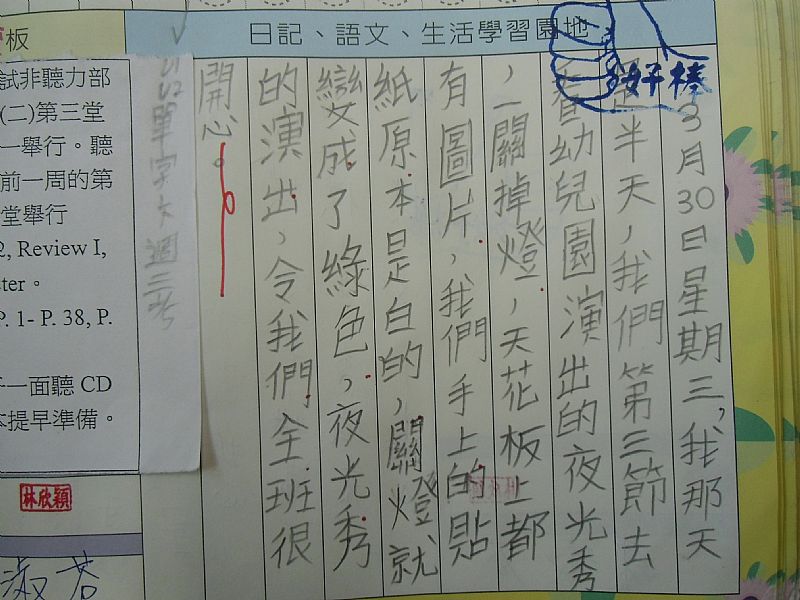 日記、語文、生活學習園地
好棒
3月30日星期三，我那天
是半天，我們第三節去
看幼兒園演出的夜光秀
，一關掉燈，天花板上都
有圖片，我們手上的貼
紙原本是白的，關燈就
變成了綠色，夜光秀
的演出，令我們全班很
開心。
板
試非聽力部
(二)第三堂
一舉行。聽
前一周的第
堂舉行
2, Review I,
ster。
P. 1- P. 38, P.
一面聽 CD
本提早準備。
單字大週三考
林欣穎
淑